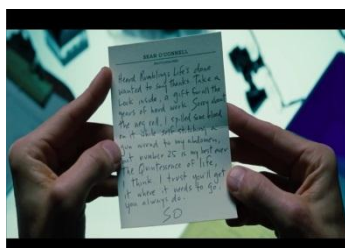 SEAN O'CONNELL
Heard Rumblings Life's done
wanted to say thanks. Take a
look inside, a gift for all the
years of hard work. Sorry about
the neg roll. I spilled some blood
on it while self-stitching a
gun wound to my abdomen,
but number 25 is my best ever
The Quintessence of life,
I think I trust you'll get
it where it needs to go,
you always do.
SO